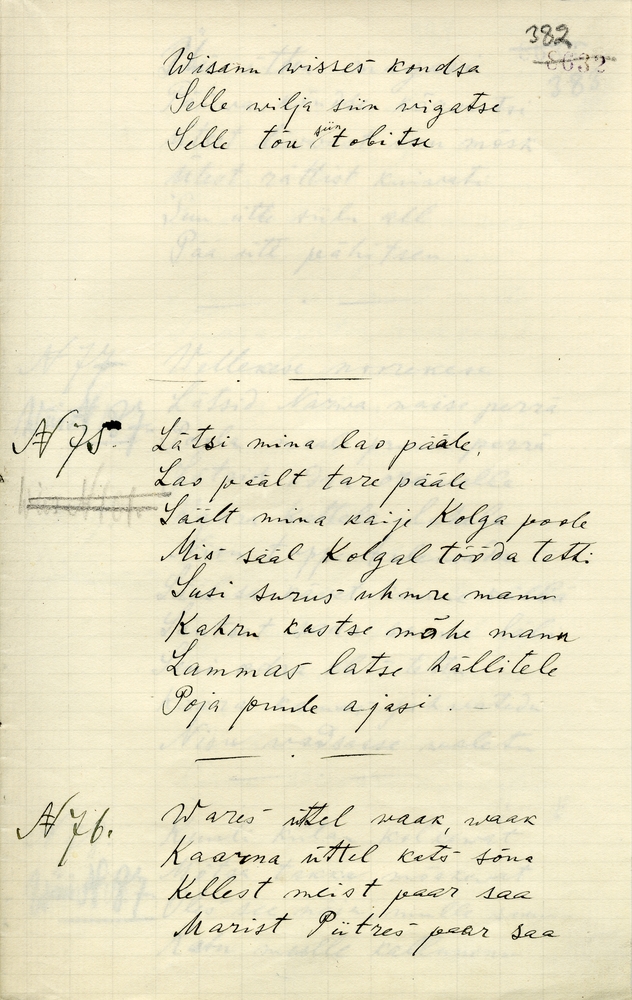 382
8632
Wisann wisses kondsa
Selle wilja siin wigatse
Selle tõu siin tobitse
N 75.
Lätsi mina lao pääle,
Lao päält tare pääle
Säält mina kaije Kolga poole
Mis sääl Kolgal tööda tetti
Susi surus uhmre mann
Kahru kastse mõhe mann
Lammas latse hällitele
Poja puule ajasi.
N 76.
Wares üttel waak, waak
Kaarna üttel kats sõna
Kellest meist paar saa
Marist Piitres paar saa